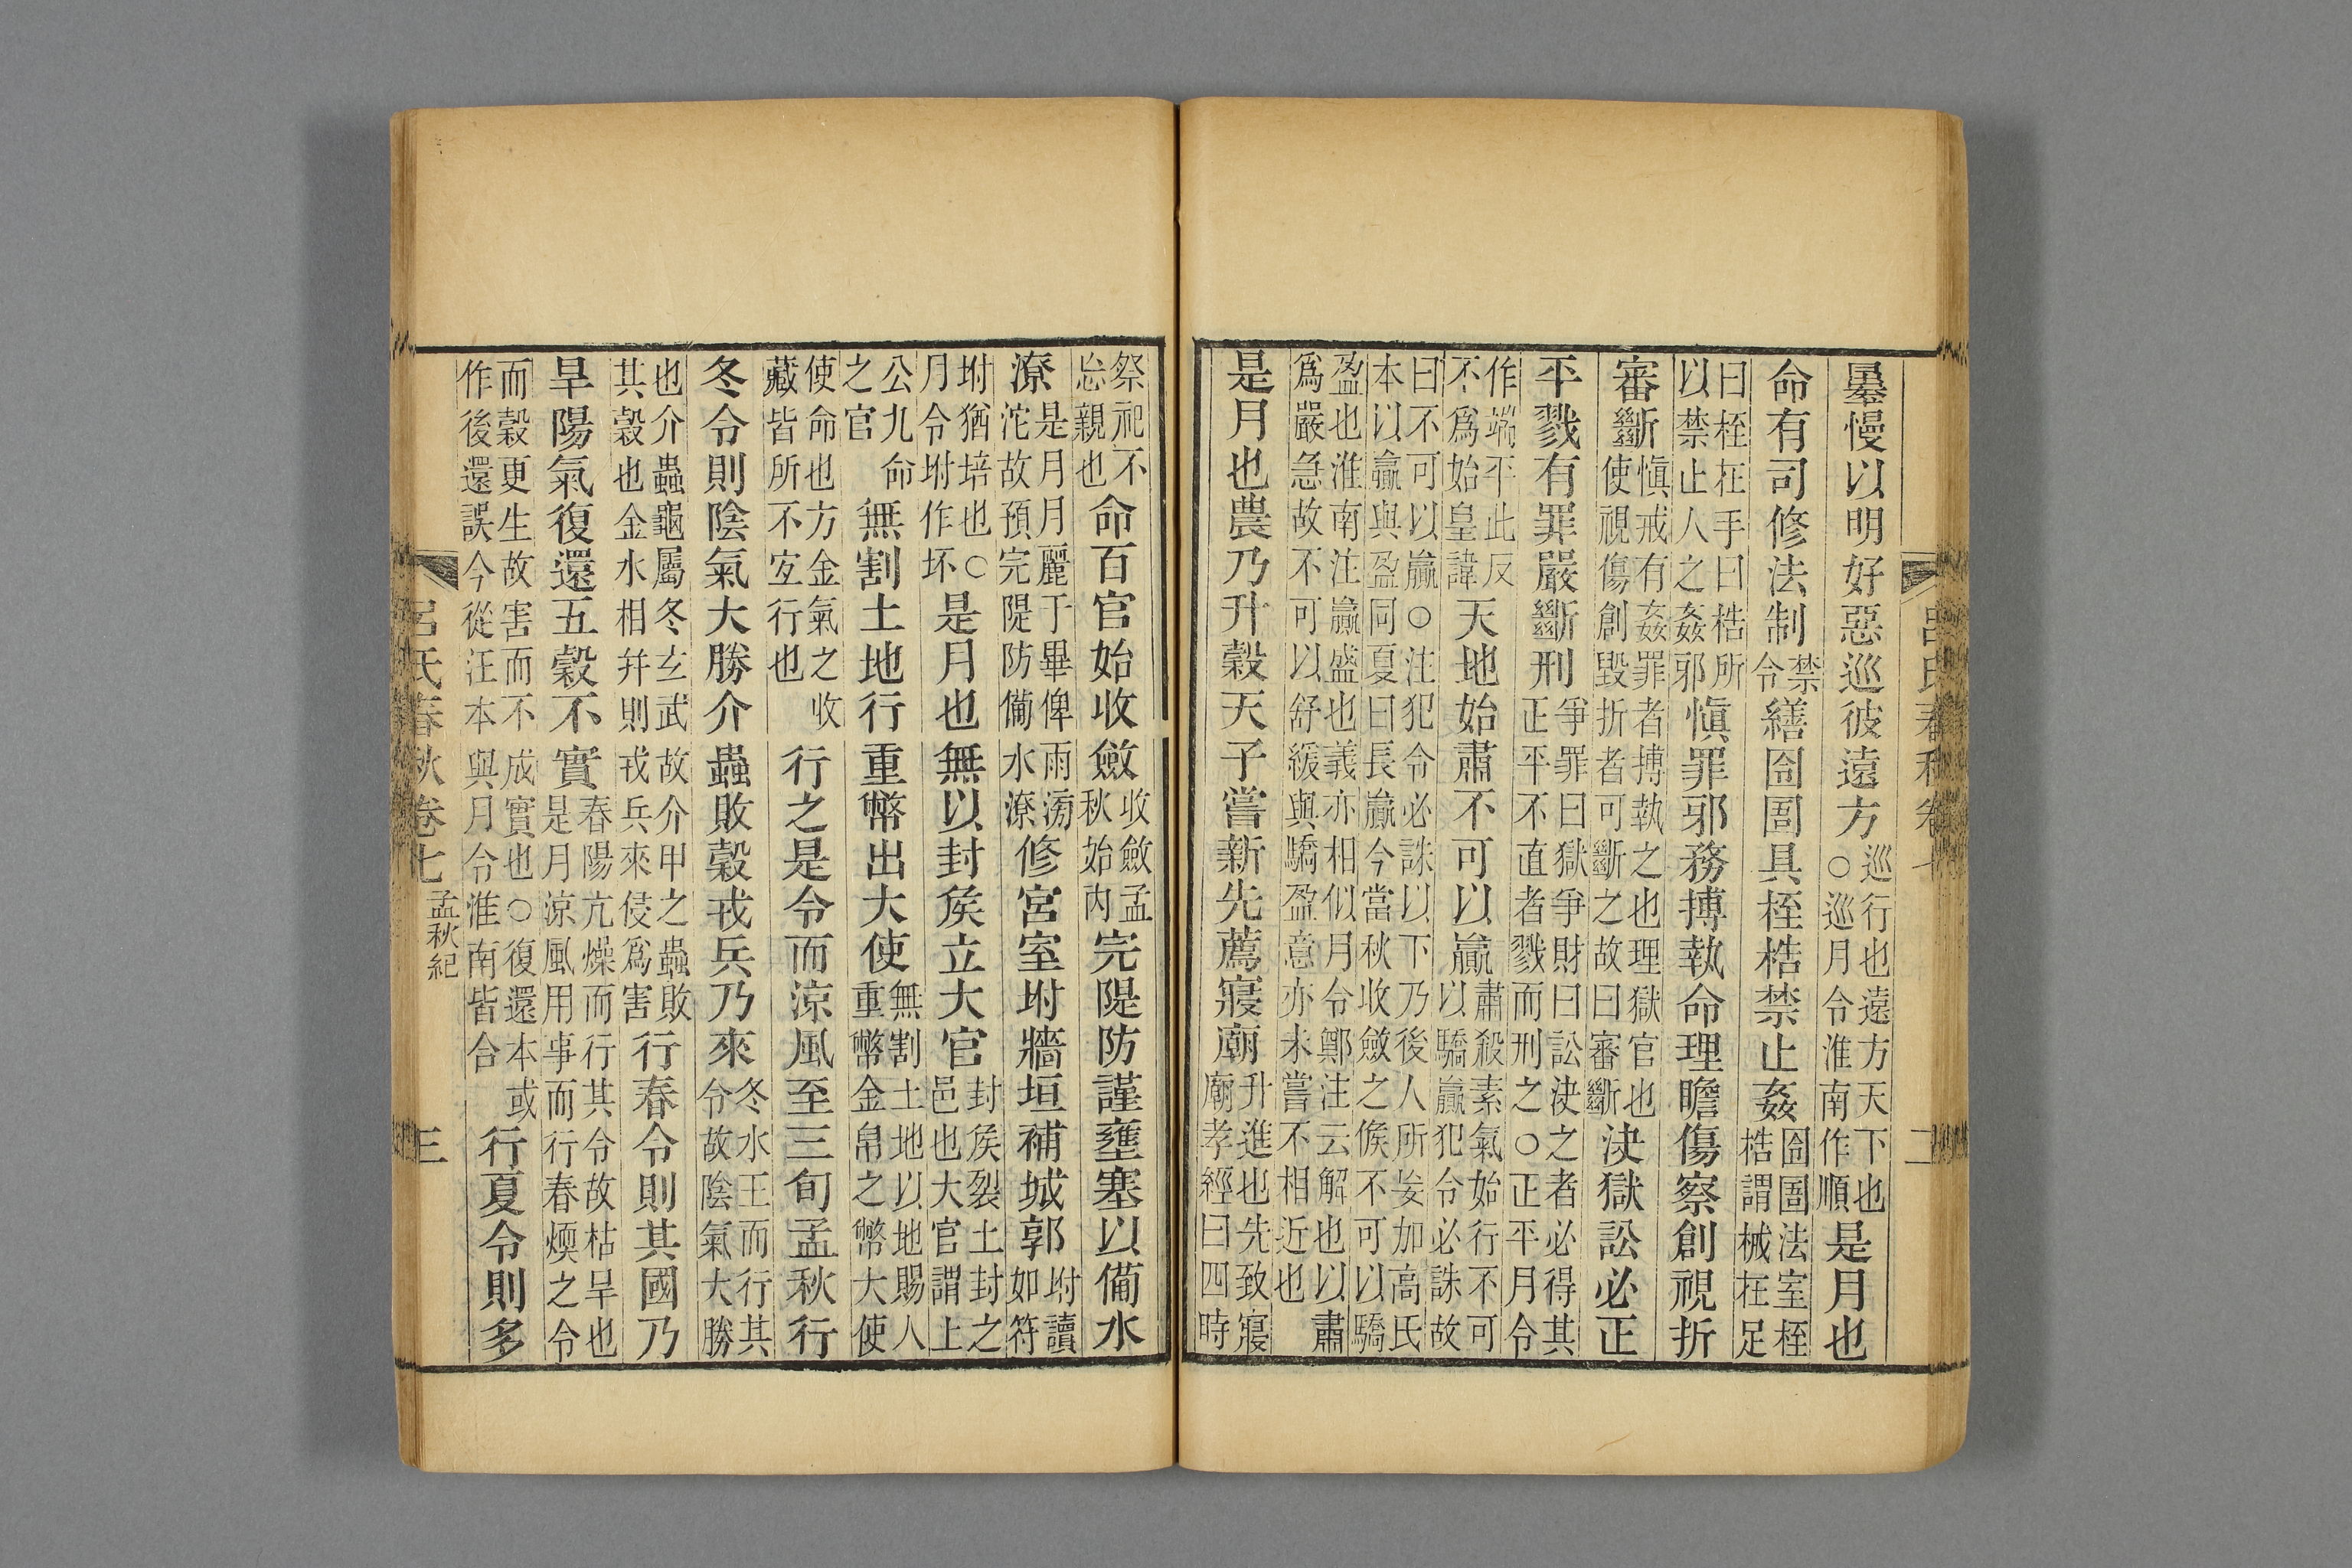 呂氏春秋卷七 二
暴慢以明好惡巡彼遠方巡行也遠方天下也○巡月令淮南作順是月也
命有司修法制禁令繕囹圄具桎梏禁止姦囹圄法室桎梏謂械在足
曰桎在手曰梏所以禁止人之姦邪愼罪邪務搏執命理瞻傷察創視折
審斷愼戒有姦罪者搏執之也理獄官也使視傷創毀折者可斷之故曰審斷決獄訟必正
平戮有罪嚴斷刑爭罪曰獄爭財曰訟決之者必得其正平不直者戮而刑之○正平月令
作端平此反不爲始皇諱天地始肅不可以贏肅殺素氣始行不可以驕贏犯令必誅故
曰不可以贏○注犯令必誅以下乃後人所妄加高氏本以贏與盈同夏曰長贏今當秋收斂之候不可以驕
盈也淮南注贏盛也義亦相似月令鄭注云解也以肅爲嚴急故不可以舒緩與驕盈意亦未嘗不相近也
是月也農乃升穀天子嘗新先薦寢廟升進也先致寢廟孝經曰四時
祭祀不忘親也命百官始收斂收斂孟秋始內完隄防謹壅塞以備水
潦是月月麗于畢俾雨滂沱故預完隄防備水潦修宮室坿牆垣補城郭坿讀如符
坿猶培也○月令坿作坏是月也無以封侯立大官封侯裂土封之邑也大官謂上
公九命之官無割土地行重幣出大使無割土地以地賜人重幣金帛之幣大使
使命也方金氣之收藏皆所不宐行也行之是令而涼風至三旬孟秋行
冬令則陰氣大勝介蟲敗穀戎兵乃來冬水王而行其令故陰氣大勝
也介蟲龜屬冬玄武故介甲之蟲敗其穀也金水相并則戎兵來侵爲害行春令則其國乃
旱陽氣復還五穀不實春陽亢燥而行其令故枯旱也是月涼風用事而行春煗之令
而穀更生故害而不成實也○復還本或作後還誤今從汪本與月令淮南皆合行夏令則多
呂氏春秋卷七 孟秋紀 三